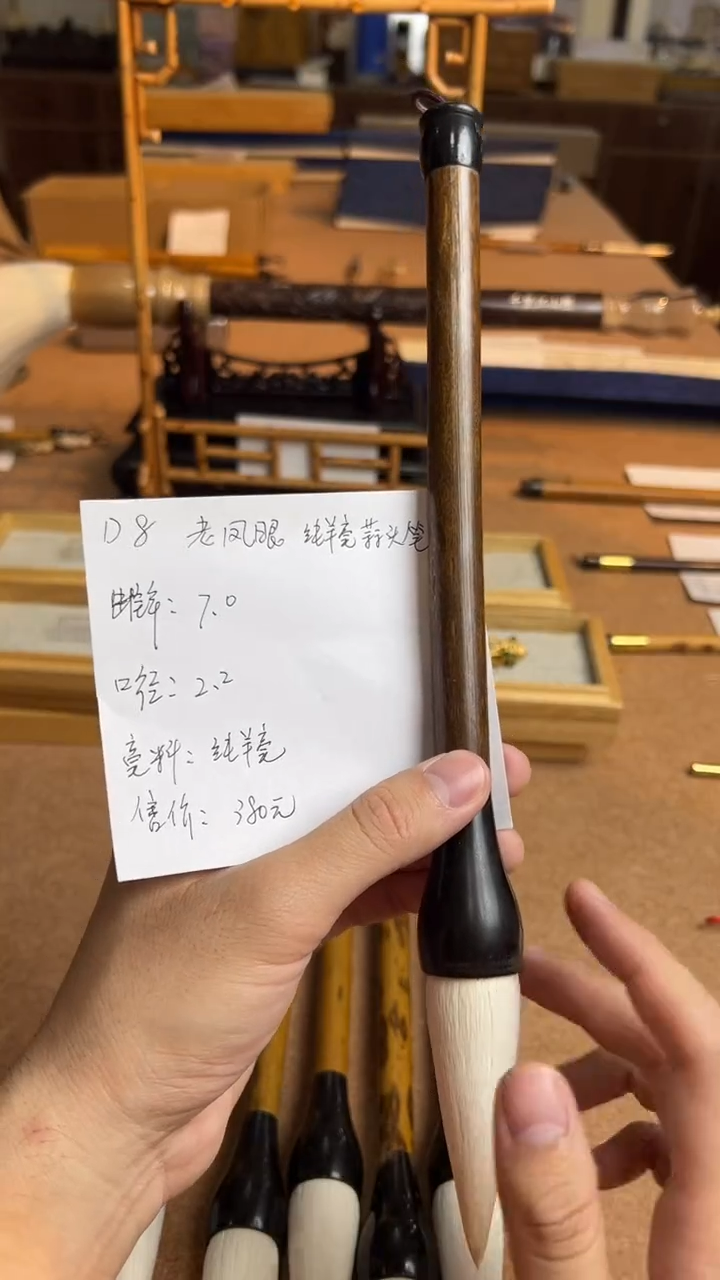 D8 老凤眼 纯羊毫蒜头笔
出锋：7.0
口径：2.2
毫料：纯羊毫
售价：380元